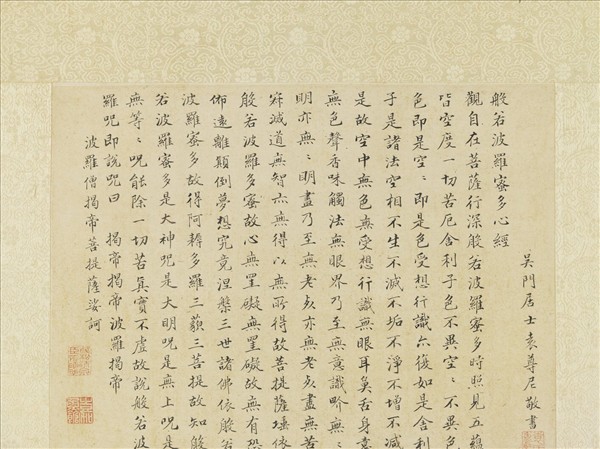 吳門居士袁尊尼敬書
般若波羅蜜多心經
觀自在菩薩行深般若波羅蜜多時照見五蘊
皆空度一切苦厄舍利子色不異空〻不異色
色即是空〻即是色受想行識亦復如是舍利
子是諸法空相不生不滅不垢不淨不增不減
是故空中無色無受想行識無眼耳鼻舌身意
無色聲香味觸法無眼界乃至無意識界無〻
明亦無〻明盡乃至無老死亦無老死盡無苦
寂滅道無智亦無得以無所得故菩提薩埵依
般若波羅蜜多故心無罣礙無罣礙故無有恐
怖遠離顛倒夢想究竟涅槃三世諸佛依般若
波羅蜜多故得阿耨多羅三藐三菩提故知般
若波羅蜜多是大神呪是大明呪是無上呪是
無等〻呪能除一切苦真實不虛故說般若波
羅呪即說呪曰 揭帝揭帝波羅揭帝
波羅僧揭帝菩提薩婆訶